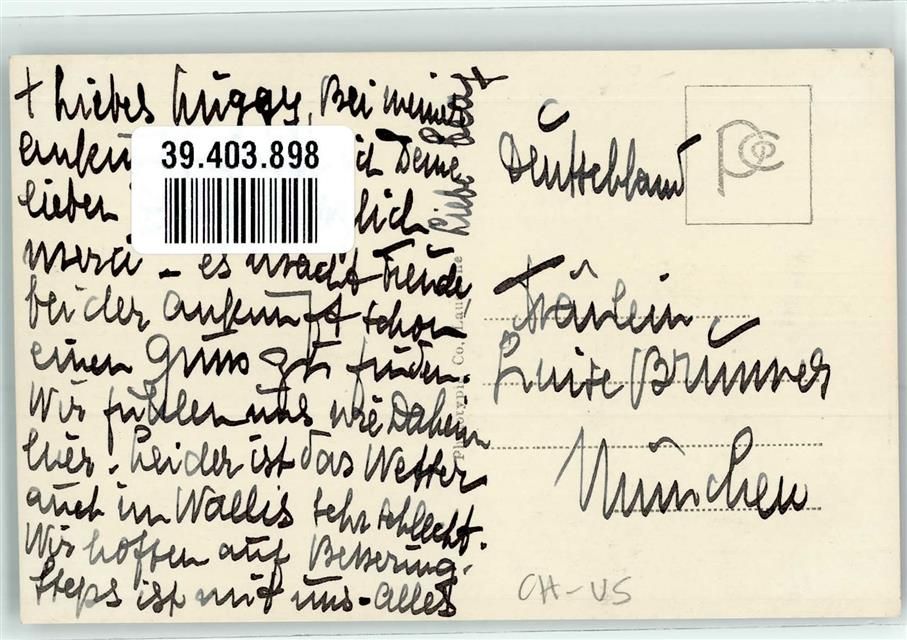 + Liebes Luggy, Bei meiner
Deine
lieben
merci - es macht Freude
bei der Ankunft schon
einen Gruss zu finden.
Wir fühlen uns wie Daheim
hier. Leider ist das Wetter
auch im Wallis sehr schlecht.
Wir hoffen auf Besserung.
Steps ist mit uns - alles
Liebe
39.403.898
Deutschland
Fräulein
Luise Brunner
München
CH-VS